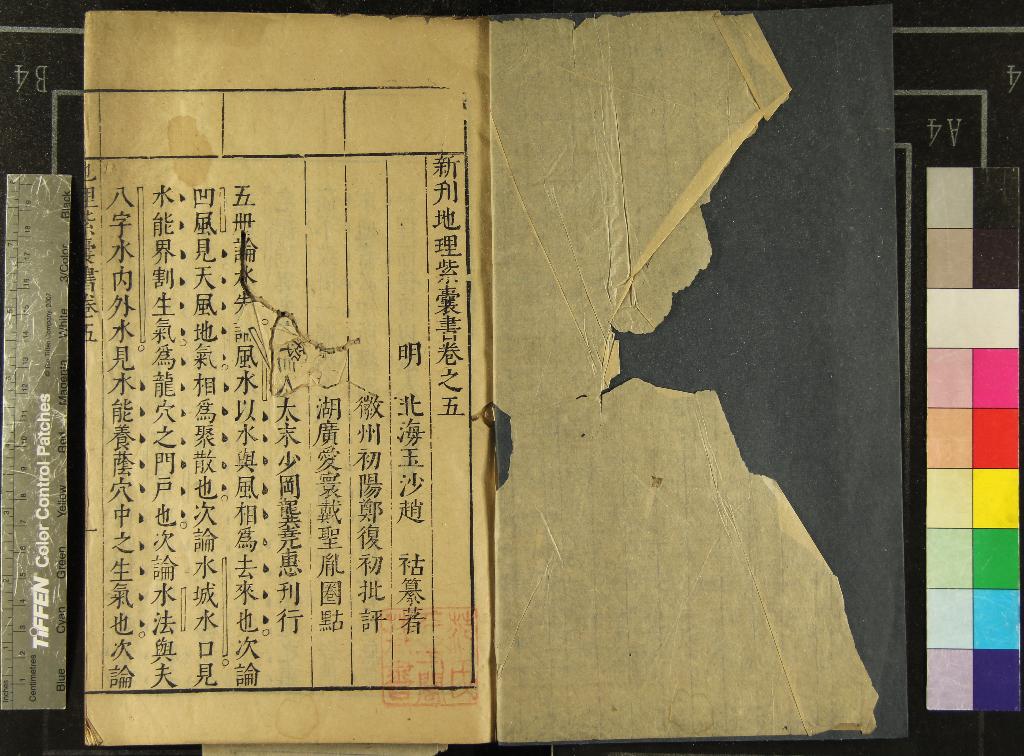 新刊地理紫囊書卷之五
明 北海玉沙趙 祜纂著
徽州初陽鄭復初批評
湖廣愛寰戴聖胤圈點
太末少岡龔堯惠刊行
五冊論水 風水以水與風相爲去來也次論
凹風見天風地氣相爲聚散也次論水城水口見
水能界割生氣爲龍穴之門戸也次論水法與夫
八字水內外水見水能養蔭穴中之生氣也次論
地理紫囊書卷五
B4
A4
4
TIFFEN Color Control Patches
© The Tiffen Company, 2007
Inches
Centimetres
Blue
Cyan
Green
Yellow
Red
Magenta
White
3/Color
Black